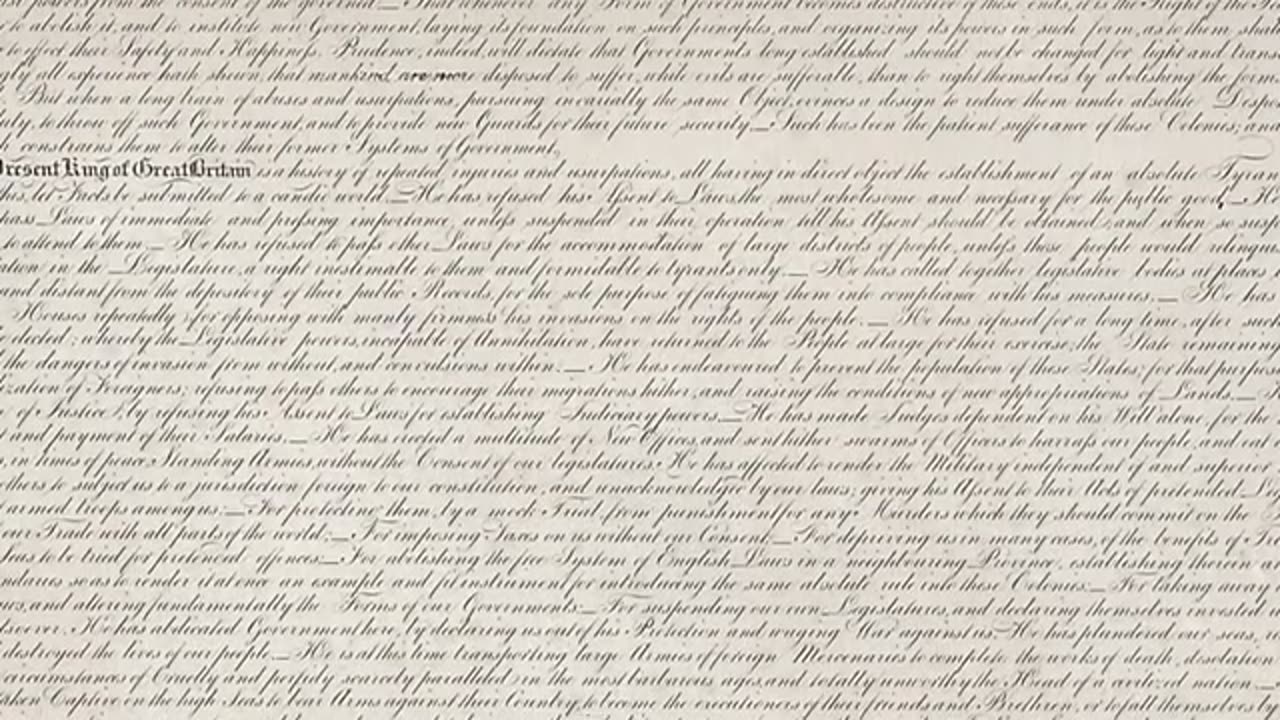 powers from the consent of the governed.— That whenever any Form of Government becomes destructive of these ends, it is the Right of the
to abolish it, and to institute new Government, laying its foundation on such principles, and organizing its powers in such form, as to them shall
to effect their Safety and Happiness. Prudence, indeed, will dictate that Governments long established should not be changed for light and trans
gly all experience hath shewn, that mankind are more disposed to suffer, while evils are sufferable, than to right themselves by abolishing the form
But when a long train of abuses and usurpations, pursuing invariably the same Object, evinces a design to reduce them under absolute Despo
uty, to throw off such Government, and to provide new Guards for their future security.— Such has been the patient sufferance of these Colonies; and
h constrains them to alter their former Systems of Government.
Present King of Great Britain is a history of repeated injuries and usurpations, all having in direct object the establishment of an absolute Tyran
this, let Facts be submitted to a candid world.— He has refused his Assent to Laws, the most wholesome and necessary for the public good.— He
pass Laws of immediate and pressing importance, unless suspended in their operation till his Assent should be obtained; and when so susp
to attend to them.— He has refused to pass other Laws for the accommodation of large districts of people, unless those people would relinqui
ation in the Legislature, a right inestimable to them and formidable to tyrants only.— He has called together legislative bodies at places
and distant from the depository of their public Records, for the sole purpose of fatiguing them into compliance with his measures.— He has
Houses repeatedly, for opposing with manly firmness his invasions on the rights of the people.— He has refused for a long time, after such
elected; whereby the Legislative powers, incapable of Annihilation, have returned to the People at large for their exercise; the State remaining
the dangers of invasion from without, and convulsions within.— He has endeavoured to prevent the population of these States; for that purpose
ization of Foreigners; refusing to pass others to encourage their migrations hither, and raising the conditions of new appropriations of Lands.—
of Justice, by refusing his Assent to Laws for establishing Judiciary powers.— He has made Judges dependent on his Will alone, for the
and payment of their Salaries.— He has erected a multitude of New Offices, and sent hither swarms of Officers to harrass our people, and eat
, in times of peace, Standing Armies, without the Consent of our legislatures. He has affected to render the Military independent of and superior
others to subject us to a jurisdiction foreign to our constitution, and unacknowledged by our laws; giving his Assent to their Acts of pretended Leg
armed troops among us:— For protecting them, by a mock Trial, from punishment for any Murders which they should commit on the
ur Trade with all parts of the world:— For imposing Taxes on us without our Consent:— For depriving us in many cases, of the benefits of Tri
Seas to be tried for pretended offences:— For abolishing the free System of English Laws in a neighbouring Province, establishing therein an
ndaries so as to render it at once an example and fit instrument for introducing the same absolute rule into these Colonies:— For taking away
ws, and altering fundamentally the Forms of our Governments:— For suspending our own Legislatures, and declaring themselves invested
tsoever. He has abdicated Government here, by declaring us out of his Protection and waging War against us. He has plundered our seas, r
destroyed the lives of our people.— He is at this time transporting large Armies of foreign Mercenaries to compleat the works of death, desolation
circumstances of Cruelty and perfidy scarcely paralleled in the most barbarous ages, and totally unworthy the Head of a civilized nation.—
taken Captive on the high Seas to bear Arms against their Country, to become the executioners of their friends and Brethren, or to fall themselves by